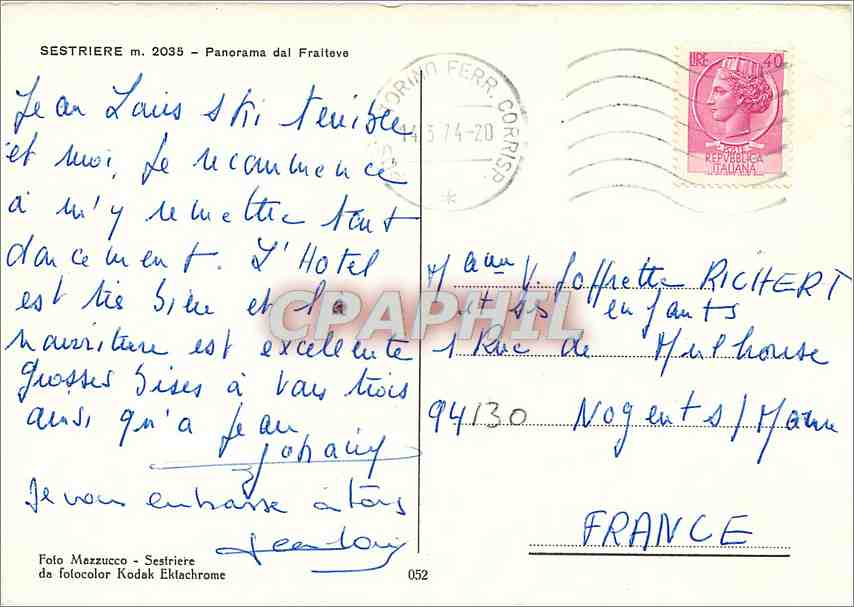 SESTRIERE m. 2035 - Panorama dal Fraiteve
Jean Louis ski terrible
et moi, Je recommence
à m'y remettre tout
doucement. L'Hotel
est très bien et la
nourriture est excellente
grosses bises à vous trois
ainsi qu'a Jean
Je vous embrasse à tous
Jean Louis
Foto Mazzucco - Sestriere
da fotocolor Kodak Ektachrome
052
TORINO FERR. CORRISP.
14.3.74-20
LIRE 40
REPVBBLICA
ITALIANA
V. Joffrette RICHERT
et ses enfants
1 Rue de Mulhouse
94130 Nogent s/Marne
FRANCE
CPAPHIL